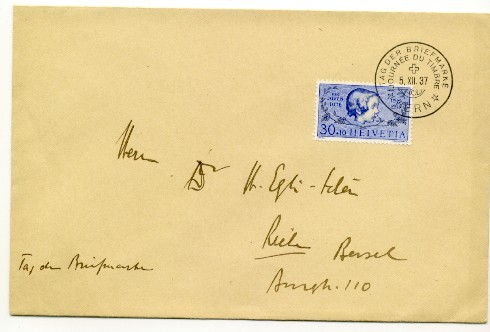 TAG DER BRIEFMARKE
JOURNÉE DU TIMBRE
5. XII. 37
BERN
PRO
JUVENTUTE
30+10 HELVETIA
Herrn
Dr H. Egli-
Riehen Basel
110
Tag der Briefmarke